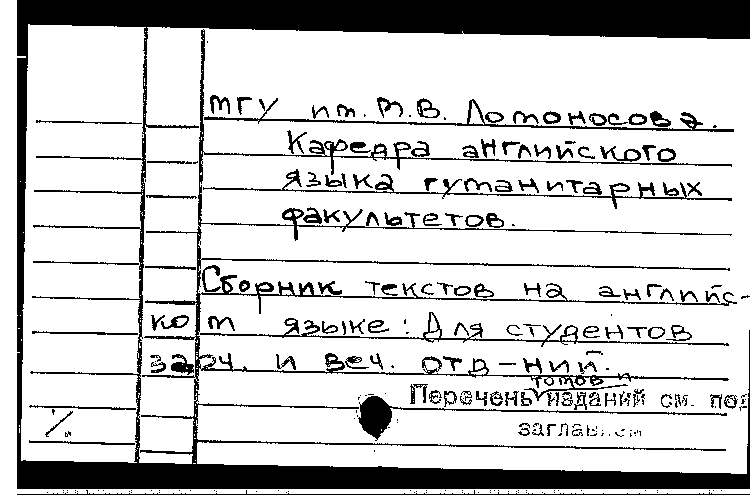 МГУ им. М.В. Ломоносова.
Кафедра английского
языка гуманитарных
факультетов.
Сборник текстов на английс-
ком языке: Для студентов
заоч. и веч. отд-ний.
томов и
Перечень изданий см. под
заглавием